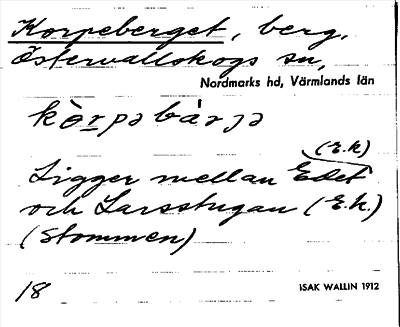 Korpeberget, berg,
Östervallskogs sn,
Nordmarks hd, Värmlands län
kòrpəbárjə
(E.k)
Ligger mellan Edet
och Larsstugan (E.k.)
(Stommen)
18
ISAK WALLIN 1912